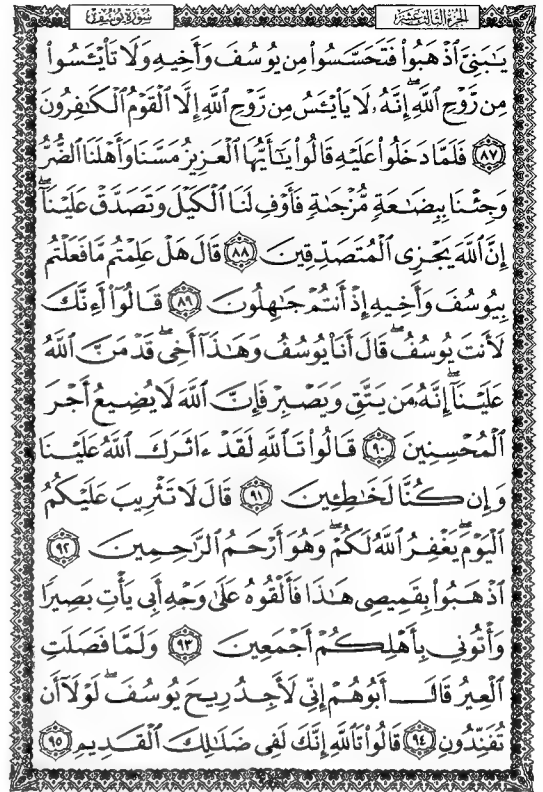 سُورَةُ يُوسُف
الجُزْءُ الثَّالِثَ عَشَر
يَٰبَنِيَّ ٱذْهَبُواْ فَتَحَسَّسُواْ مِن يُوسُفَ وَأَخِيهِ وَلَا تَاْيْـَٔسُواْ
مِن رَّوْحِ ٱللَّهِۖ إِنَّهُۥ لَا يَاْيْـَٔسُ مِن رَّوْحِ ٱللَّهِ إِلَّا ٱلْقَوْمُ ٱلْكَٰفِرُونَ
٨٧ فَلَمَّا دَخَلُواْ عَلَيْهِ قَالُواْ يَٰٓأَيُّهَا ٱلْعَزِيزُ مَسَّنَا وَأَهْلَنَا ٱلضُّرُّ
وَجِئْنَا بِبِضَٰعَةٍ مُّزْجَىٰةٍ فَأَوْفِ لَنَا ٱلْكَيْلَ وَتَصَدَّقْ عَلَيْنَآۖ
إِنَّ ٱللَّهَ يَجْزِى ٱلْمُتَصَدِّقِينَ ٨٨ قَالَ هَلْ عَلِمْتُم مَّا فَعَلْتُم
بِيُوسُفَ وَأَخِيهِ إِذْ أَنتُمْ جَٰهِلُونَ ٨٩ قَالُوٓاْ أَءِنَّكَ
لَأَنتَ يُوسُفُۖ قَالَ أَنَا۠ يُوسُفُ وَهَٰذَآ أَخِىۖ قَدْ مَنَّ ٱللَّهُ
عَلَيْنَآۖ إِنَّهُۥ مَن يَتَّقِ وَيَصْبِرْ فَإِنَّ ٱللَّهَ لَا يُضِيعُ أَجْرَ
ٱلْمُحْسِنِينَ ٩٠ قَالُواْ تَٱللَّهِ لَقَدْ ءَاثَرَكَ ٱللَّهُ عَلَيْنَا
وَإِن كُنَّا لَخَٰطِـِٔينَ ٩١ قَالَ لَا تَثْرِيبَ عَلَيْكُمُ
ٱلْيَوْمَۖ يَغْفِرُ ٱللَّهُ لَكُمْۖ وَهُوَ أَرْحَمُ ٱلرَّٰحِمِينَ ٩٢
ٱذْهَبُواْ بِقَمِيصِى هَٰذَا فَأَلْقُوهُ عَلَىٰ وَجْهِ أَبِى يَأْتِ بَصِيرًا
وَأْتُونِى بِأَهْلِكُمْ أَجْمَعِينَ ٩٣ وَلَمَّا فَصَلَتِ
ٱلْعِيرُ قَالَ أَبُوهُمْ إِنِّى لَأَجِدُ رِيحَ يُوسُفَۖ لَوْلَآ أَن
تُفَنِّدُونِ ٩٤ قَالُواْ تَٱللَّهِ إِنَّكَ لَفِى ضَلَٰلِكَ ٱلْقَدِيمِ ٩٥